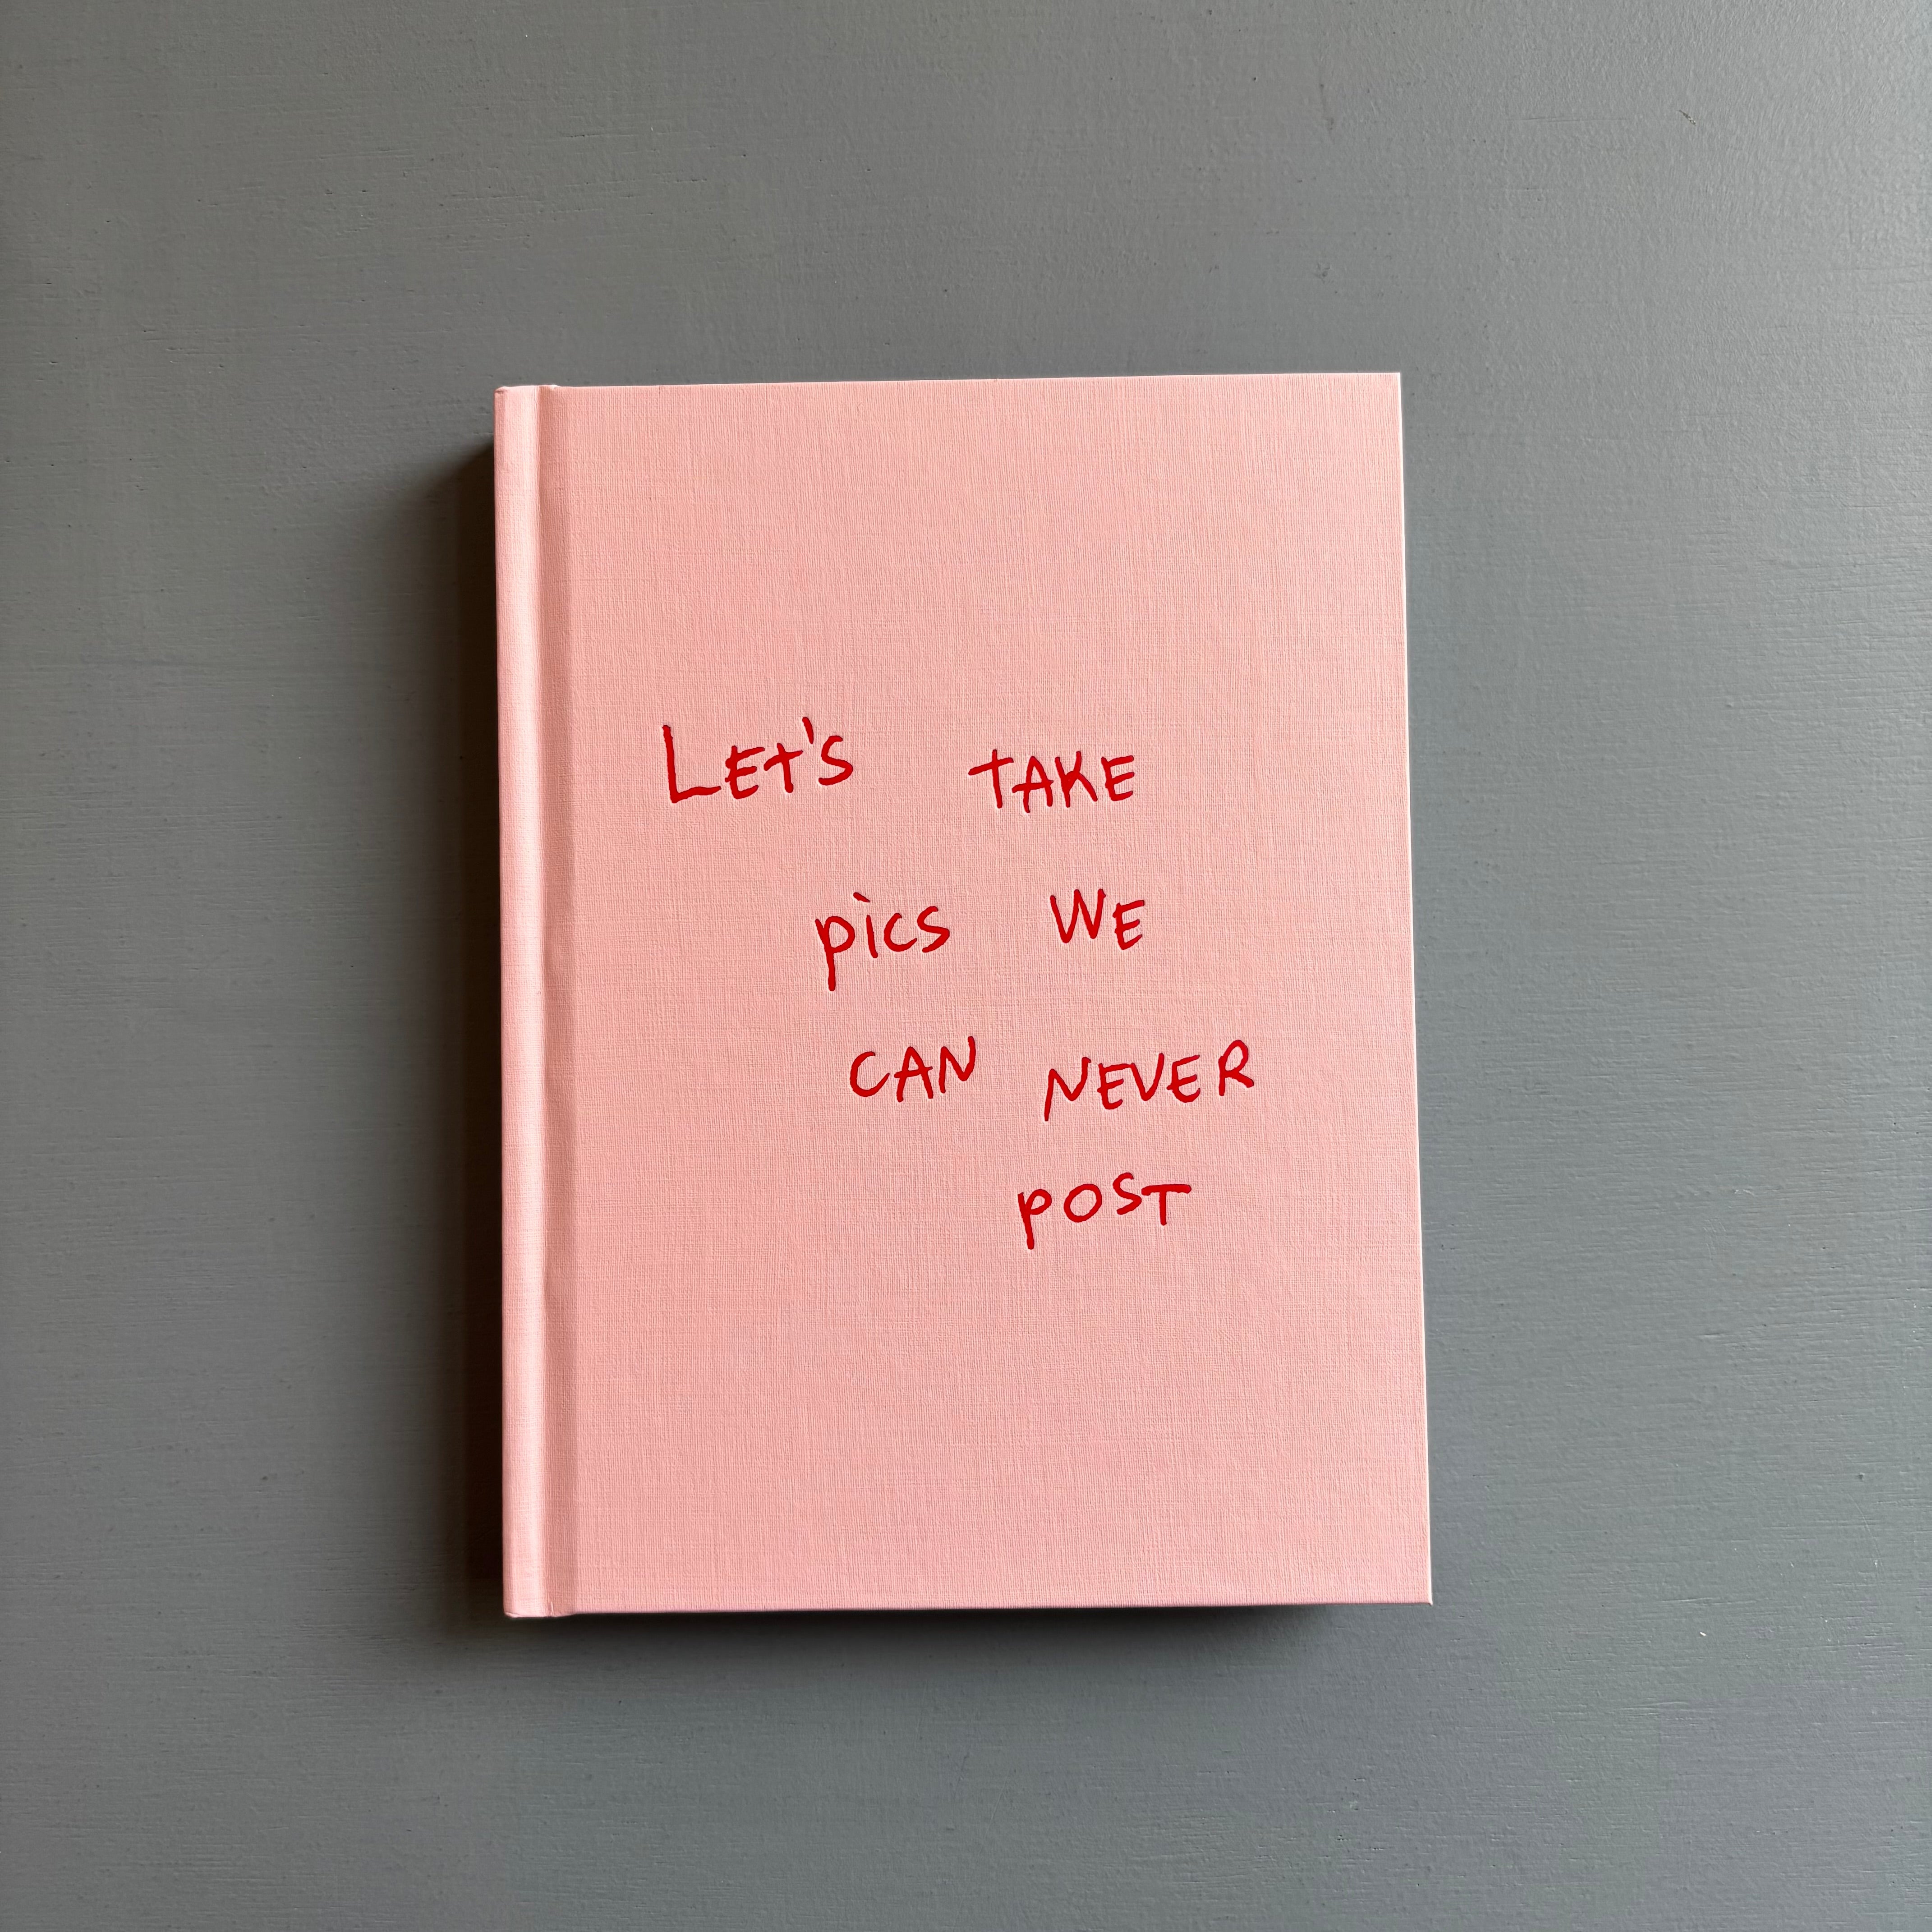 LEt's tAKE
pics WE
CAN NEVER
POST